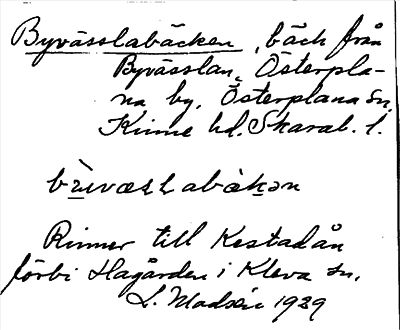 Byvässlabäcken, bäck från
Byvässlan, Österpla-
na by, Österplana sn.
Kinne hd. Skarab. l.
Rinner till Kestadån
förbi Hagården i Kleva sn.
L. Madsén 1929